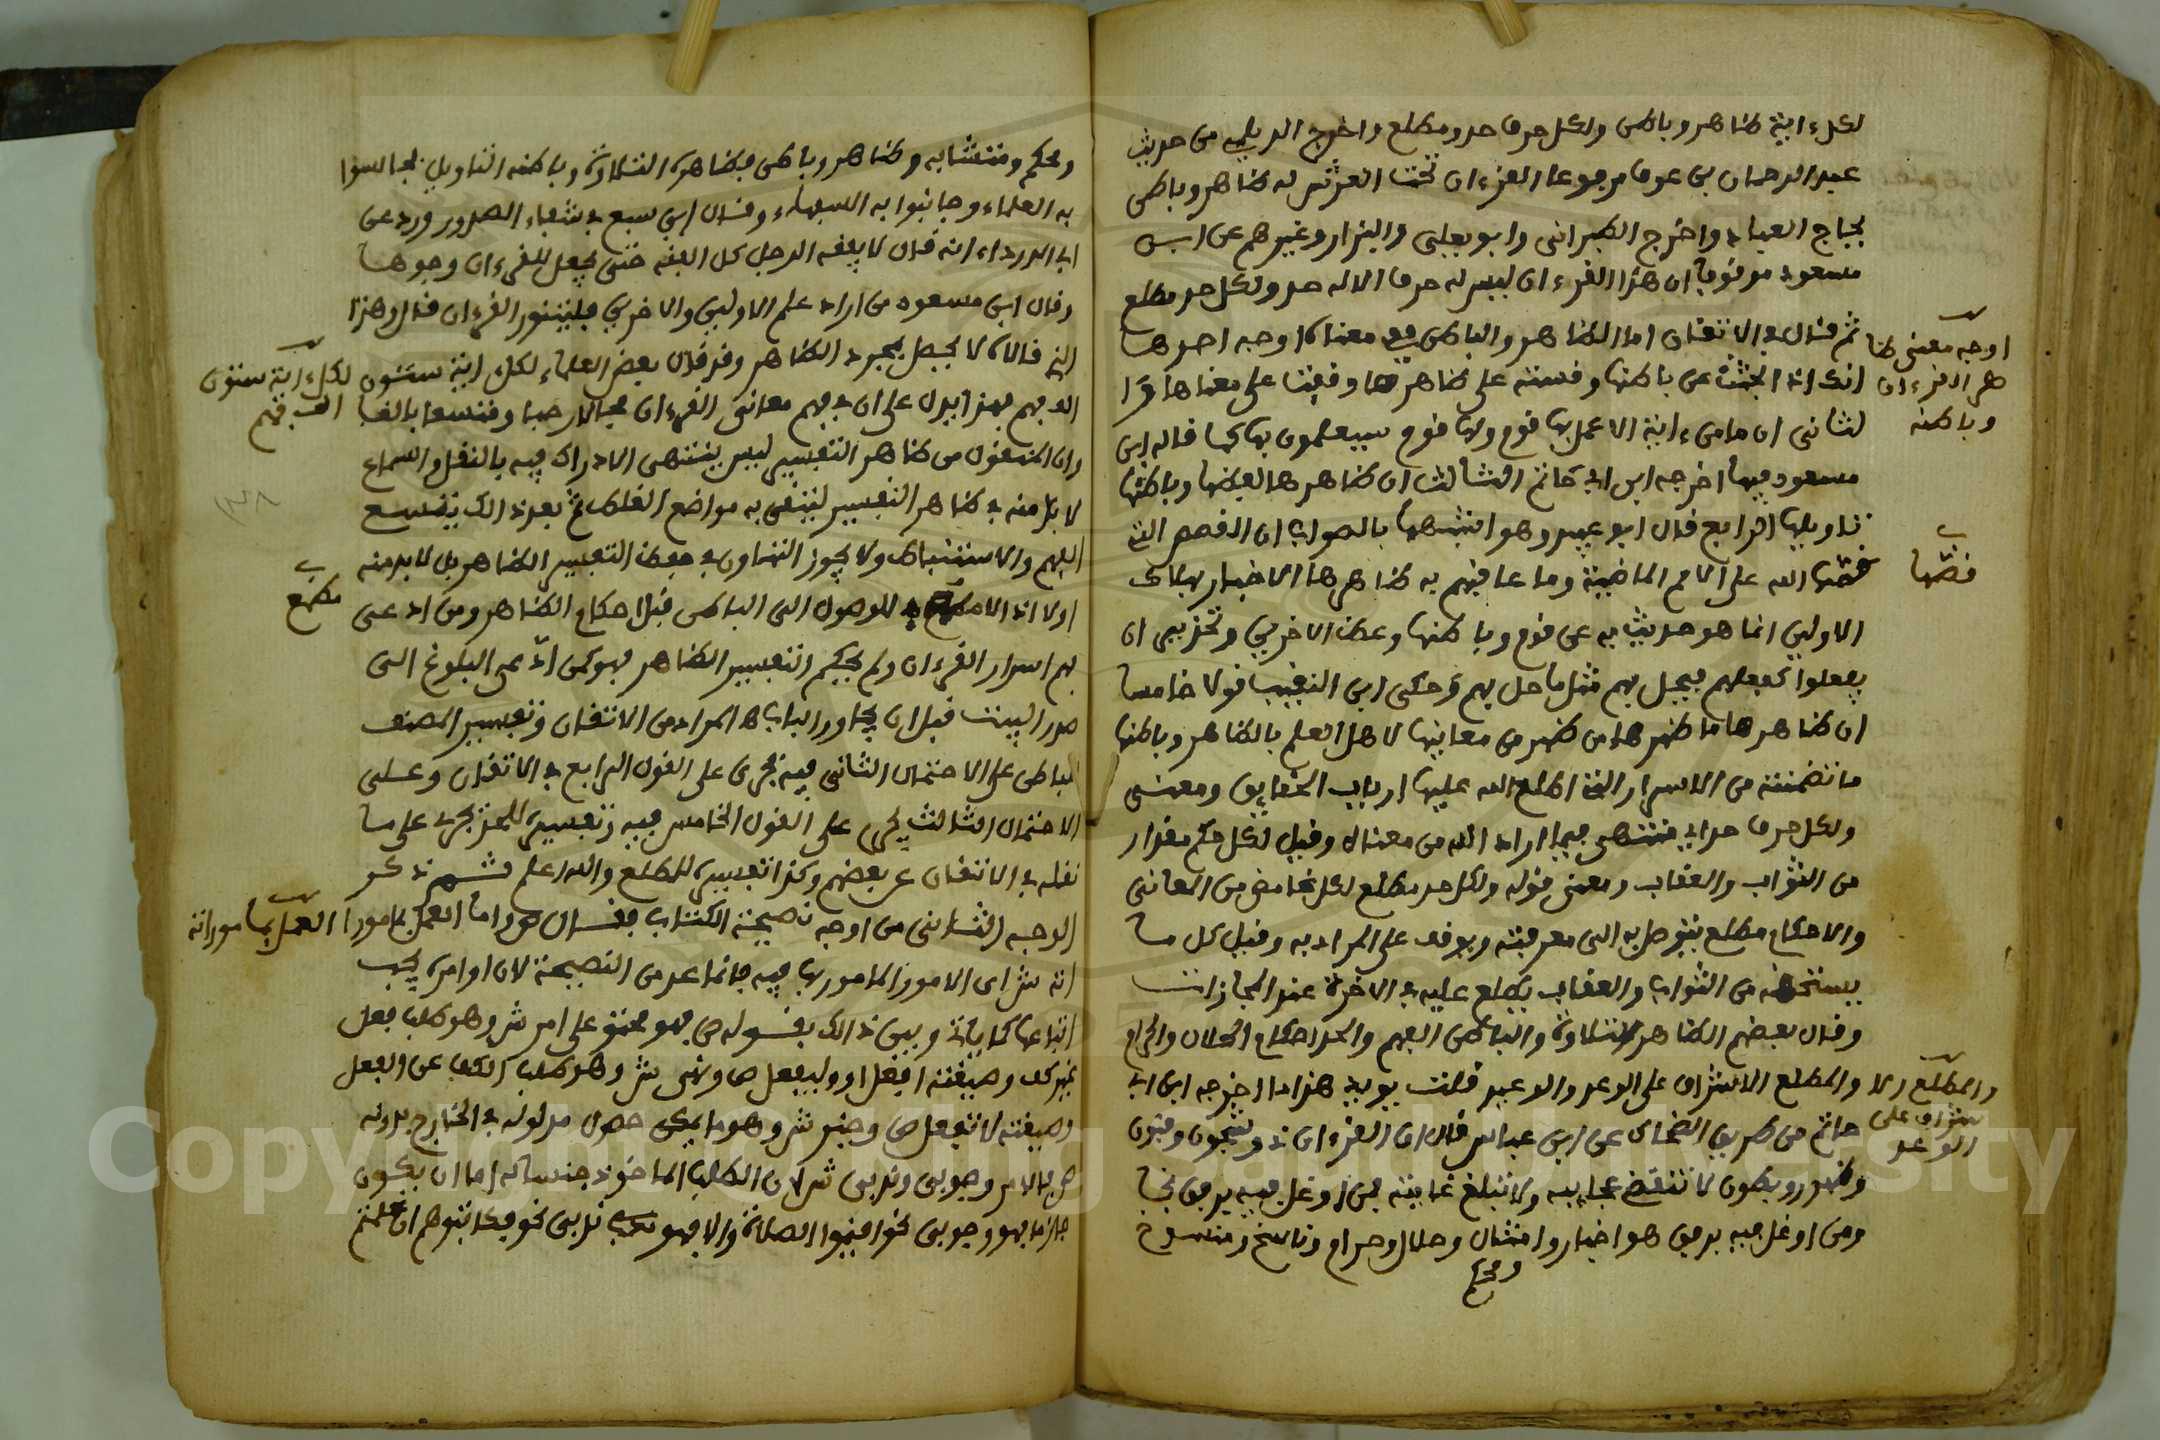 لكل ءاية ظاهر وباطن ولكل حرف حد ومطلع واخرج الديلمي من حديث
عبد الرحمان بن عوف مرفوعا القرءان تحت العرش له ظاهر وباطن
يحاج العباد واخرج الطبراني وابو يعلى والبزار وغيرهم عن ابن
مسعود موقوفا ان هذا القرءان ليس له حرف الا له حد ولكل حد مطلع
ثم قال في الاتقان اما الظاهر والباطن ففي معناه اوجه احدها
انك اذا بحثت عن باطنها وقسته على ظاهرها وقفت على معناها
الثاني ان ما من ءاية الا عمل بها قوم ولها قوم سيعملون بها كما قاله ابن
مسعود فيما اخرجه ابن ابي حاتم الثالث ان ظاهرها لفظها وباطنها
تاويلها الرابع قال ابو عبيد وهو اشبهها بالصواب ان القصص التي
قصها الله على الامم الماضية وما عاقبهم به ظاهرها الاخبار بهلاك
الاولين انما هو حديث به عن قوم وباطنها وعظ الاخرين وتحذيرهم ان
يفعلوا كفعلهم فيحل بهم مثل ما حل بهم وحكى ابن النقيب قولا خامسا
ان ظاهرها ما ظهر من معانيها لاهل العلم بالظاهر وباطنها
ما تضمنته من الاسرار التي اطلع الله عليها ارباب الحقايق ومعنى
ولكل حرف حد اي منتهى فيما اراد الله من معناه وقيل لكل حكم مقدار
من الثواب والعقاب ومعنى قوله ولكل حد مطلع لكل غامض من المعاني
والاحكام مطلع يتوصل به الى معرفته ويوقف على المراد به وقيل كل ما
يستحقه من الثواب والعقاب يطلع عليه في الاخرة عند المجازات
وقال بعضهم الظاهر التلاوة والباطن الفهم والحد احكام الحلال والحرام
والمطلع الاشراف على الوعد والوعيد قلت يؤيد هذا ما اخرجه ابن ابي
حاتم من طريق الضحاك عن ابن عباس قال ان القرءان ذو شجون وفنون
وظهور وبطون لا تنقضي عجايبه ولا تبلغ غايته فمن اوغل فيه برفق نجا
ومن اوغل فيه برفق هو اخبار وامثال وحلال وحرام وناسخ ومنسوخ
ومحكم
اوجه معنى ظا
هر القرءان
وباطنه
قصها
والمطلع الا
شراف على
الوعد
ومحكم ومتشابه وظاهر وباطن فظاهره التلاوة وباطنه التاويل فجالسوا
به العلماء وجانبوا به السفهاء وقال ابن سبع في شفاء الصدور ورد عن
ابي الدرداء انه قال لا يفقه الرجل كل الفقه حتى يجعل للقرءان وجوها
وقال ابن مسعود من اراد علم الاولين والاخرين فليثور القرءان قال وهذا
الذي قالاه لا يحصل بمجرد الظاهر وقد قال بعض العلماء لكل ءاية ستون
الف فهم فهذا يدل على ان في فهم معاني القرءان مجالا رحبا ومتسعا بالغا
وان المنقول من ظاهر التفسير ليس ينتهي الادراك فيه بالنقل والسماع
لا بد منه في ظاهر التفسير ليتقى به مواضع الغلط ثم بعد ذالك يتسع
الفهم والاستنباط ولا يجوز التهاون في حفظ التفسير الظاهر بل لا بد منه
اولا اذ لا مطمع للوصول الى الباطن قبل احكام الظاهر ومن ادعى
فهم اسرار القرءان ولم يحكم التفسير الظاهر فهو كمن ادعى البلوغ الى
صدر البيت قبل ان يجاوز الباب ها المراد من الاتقان وتفسير المصنف
الباطن على الاحتمال الثاني فيه يجري على القول الرابع في الاتقان وعلى
الاحتمال الثالث يجري على القول الخامس فيه وتفسيره للحد يجري على ما
نقله في الاتقان عن بعضهم وكذا تفسيره للمطلع والله اعلم ثم ذكر
الوجه الثاني من اوجه نصيحة الكتاب فقال ص واما العمل بمامورا
اته ش اي الامور المامور بها فيه فانما عد من النصيحة لان اوامره يجب
اتباعها كما ياتي وبين ذالك بقوله ص فهو محتو على امر ش وهو طلب فعل
غير كف وصيغته افعل او وليفعل ص ونهي ش وهو طلب الكف عن الفعل
وصيغته لا تفعل ص وخبر ش وهو ما يمكن حصول مدلوله في الخارج بدونه
ص فالامر وجوبي وندبي ش لان الطلب الماخوذ جنسا له اما ان يكون
جازما فهو وجوبي نحو اقيموا الصلاة والا فهو ندبي نحو فكاتبوهم ان علمتم
لكل ءاية ستون
الف فهم
مطمع
العمل بماموراته
Copyright © King Saud University